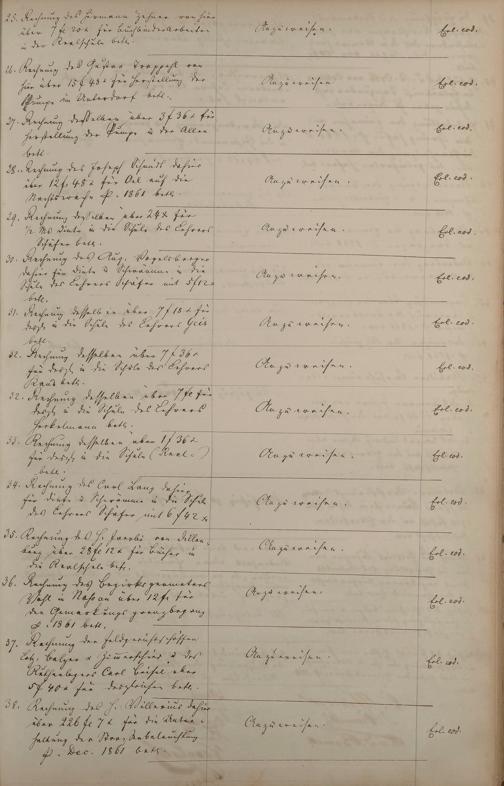 25. Rechnung des Hermann Zehner von hier
über 7 fl 20 x für Buchbinderarbeiten
in der Realschule betr.
Anzuweisen.
Erl. eod.
26. Rechnung des Gustav von
hier über 15 fl 43 x für Herstellung der
Pumpe im Unterdorf betr.
Anzuweisen
Erl. eod.
27. Rechnung desselben über 3 fl 36 x für
Herstellung der Pumpe in der Allee
betr.
Anzuweisen.
Erl. eod.
28. Rechnung des Joseph Schmidt dahier
über 12 fl. 45 x für Oel auf die
Nachtwache p. 1861 betr.
Anzuweisen.
Erl. eod.
29. Rechnung desselben über 24 x für
½ Ms Dinte in die Schule des Lehrers
Schäfer betr.
Anzuweisen.
Erl. eod.
30. Rechnung des Aug. Vogelsberger
dahier für Dinte u Schwämme in die
Schule des Lehrers Schäfer mit 5 fl 12 x
betr.
Anzuweisen.
Erl. eod.
31. Rechnung desselben über 7 fl 18 x für
desgl. in die Schule des Lehrers
betr.
Anzuweisen.
Erl. eod.
32. Rechnung desselben über 7 fl 36 x
für desgl. in die Schule des Lehrers
betr.
Anzuweisen.
Erl. eod.
32. Rechnung desselben über 7 fl für
desgl. in die Schule des Lehrers
Henkelmann betr.
Anzuweisen.
Erl. eod.
33. Rechnung desselben über 1 fl 36 x
für desgl. in die Schule (Real.)
betr.
Anzuweisen.
Erl. eod.
34. Rechnung des Carl Lang dahier
für Dinte u Schwämme in die Schule
des Lehrers Schäfer mit 6 fl 42 x
Anzuweisen.
Erl. eod.
35. Rechnung des J. Jacobi von Dillen-
burg über 28 fl 12 x für Bücher in
die Realschule betr.
Anzuweisen.
Erl. eod.
36. Rechnung des Bezirksgeometers
in Nassau über 12 fl. für
den Gemarkungsgrenzbegang
p. 1861 betr.
Anzuweisen.
Erl. eod.
37. Rechnung der Feldgerichtsschöffen
Balzer u des
Carl über
5 fl. 40 x für desgleichen betr.
Anzuweisen.
Erl. eod.
38. Rechnung des J. dahier
über 226 fl 7 x für die Unter-
haltung der Straßenbeleuchtung
p. Dec. 1861 betr.
Anzuweisen.
Erl. eod.